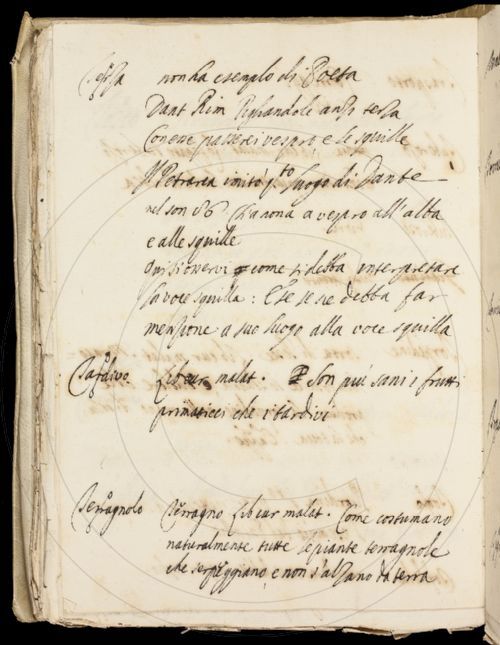 Tersa non ha esemplo di Poeta
Dant Rim Pigliandole anzi terza
Con esse passerei vespro, e le squille
Il Petrarca imitò q.to luogo di Dante
nel son 86 Ch'a nona a vespro all'alba
e alle squille
Quì si osservi come si debba interpretare
la voce squilla: E se se ne debba far
menzione a suo luogo alla voce squilla
Tardivo Lib cur malat. Son piú sani i frutti
primaticci che i tardivi
Terragnolo Terragno Lib cur malat. Come costumano
naturalmente tutte le piante terragnole
che serpeggiano e non s'alzano da terra